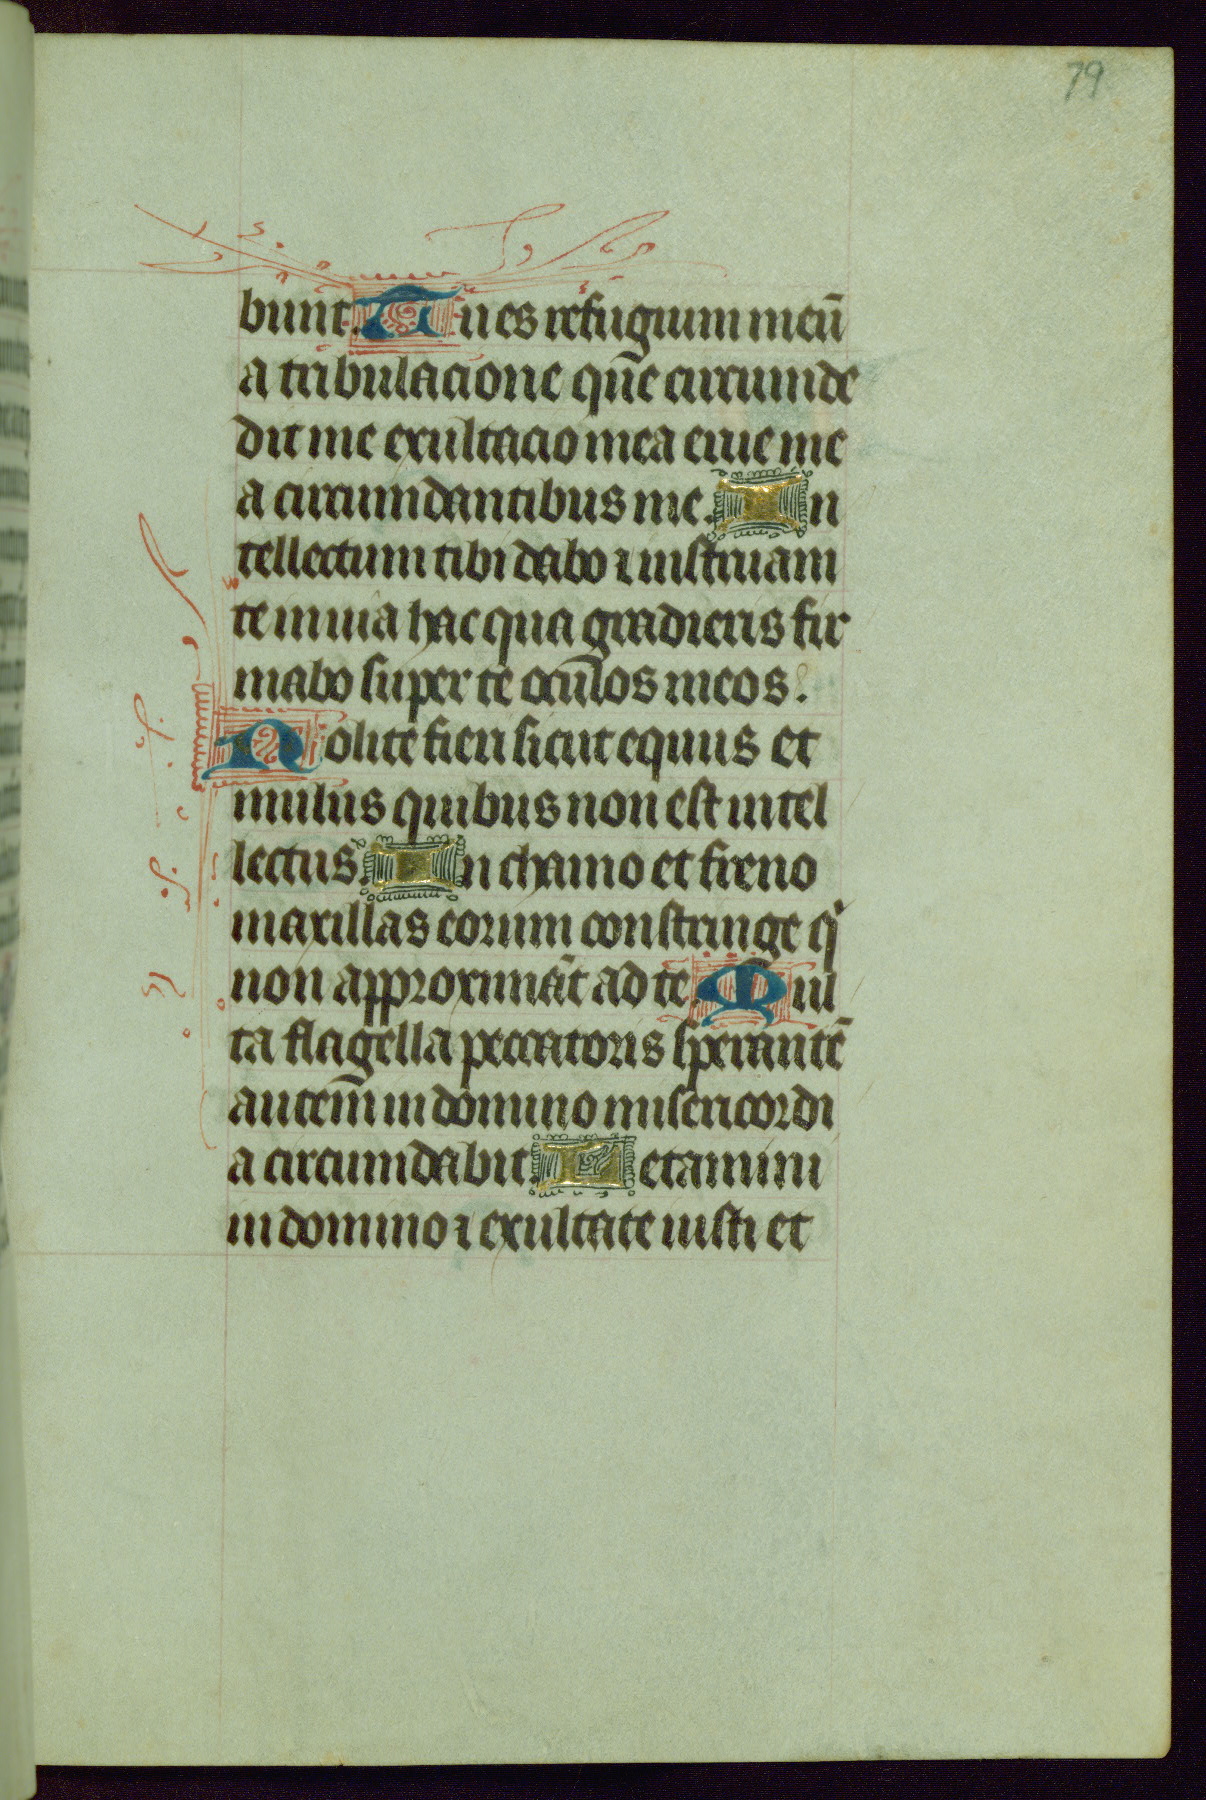 79
bunt. Tu es refugium meū
a tribulacione que circumde
dit me exultacio mea erue me
a circumdantibus me. In
tellectum tibi dabo ⁊ instruam
te in uia hac qua gradieris fir
mabo super te oculos meos.
Nolite fieri sicut equus et
mulus quibus non est intel
lectus. In chamo et freno
maxillas eorum constringe q̇
non approximāt ad te. Mul
ta flagella peccatoris sperantē
autem in domino misericordi
a circumdabit. Letamini
in domino ⁊ exultate iusti et